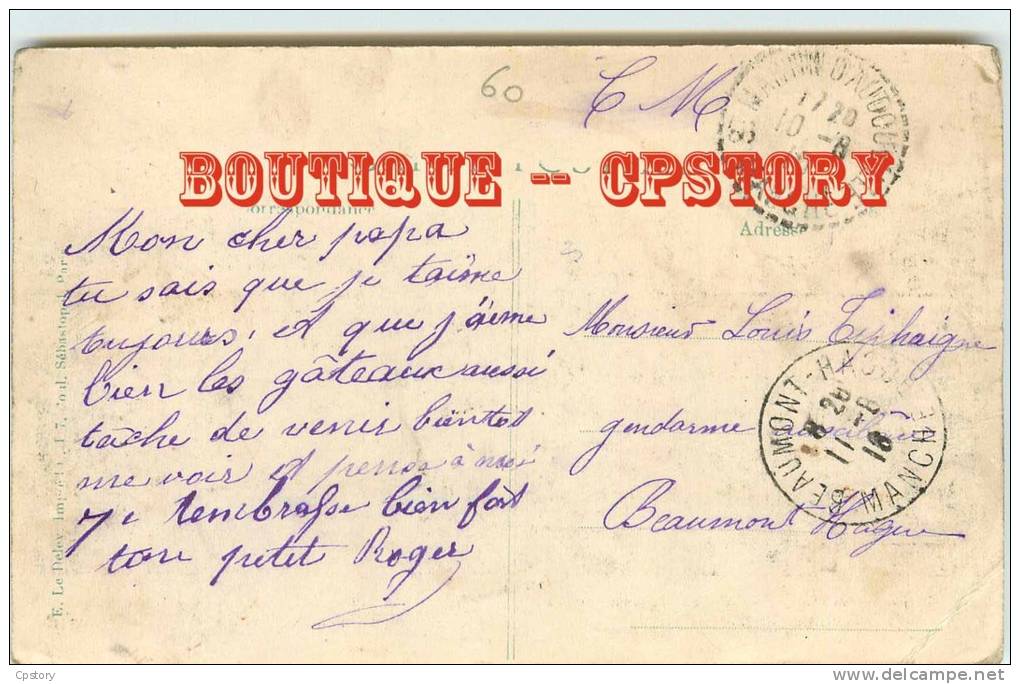 60
C M
17 20
10 -8
BOUTIQUE -- CPSTORY
Correspondance
Adresse
Mon cher papa
tu sais que je t'aime
toujours. et que j'aime
bien les gâteaux aussi
tâche de venir bientot
me voir et pense à moi
Je t'embrasse bien fort
ton petit Roger
Monsieur Louis Tiphaigne
gendarme
Beaumont-Hague
BEAUMONT-HAGUE
8 20
11 -8
18
MANCHE
E. Le Deley, Imp.
Boul. Sébastopol, Par
Cpstory
delcampe.net